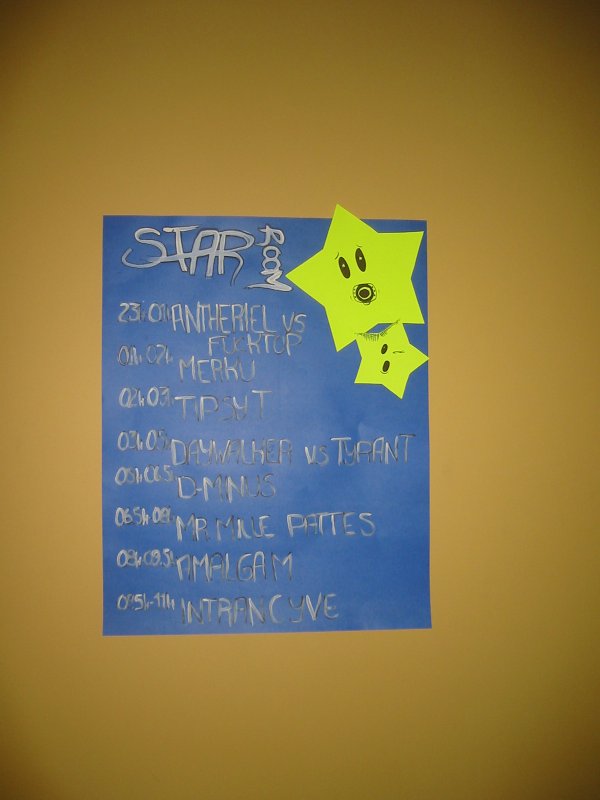 STAR ROOM
23h 01h ANTHERIEL VS
FUCKTOP
01h 02h MERKU
02h 03h TIPSY T
03h 05h DAYWALKER VS TYRANT
05h 06.5h D-MINUS
06.5h 08h MR. MILLE PATTES
08h 09.5h AMALGAM
09.5h-11h INTRANCYVE